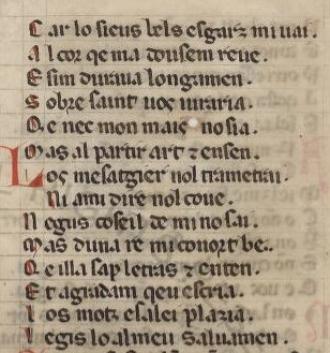 Car lo sieus bels esgarz mi uai.
Al cor qe ma dousem reue.
E sim duraua longamen.
Sobre saint uos iuraria.
Qe nec mon mais nosia.
Mas al partir art ⁊ ensen.
Los mesatgier nol trametrai.
Ni ami dire nol coue.
Negus coseil de mi no sai.
Mas duna re mi conort be.
Qe illa sap letras ⁊ enten.
Et agradam qeu escria.
Los motz esalei plazia.
Legis lo al meu saluamen.